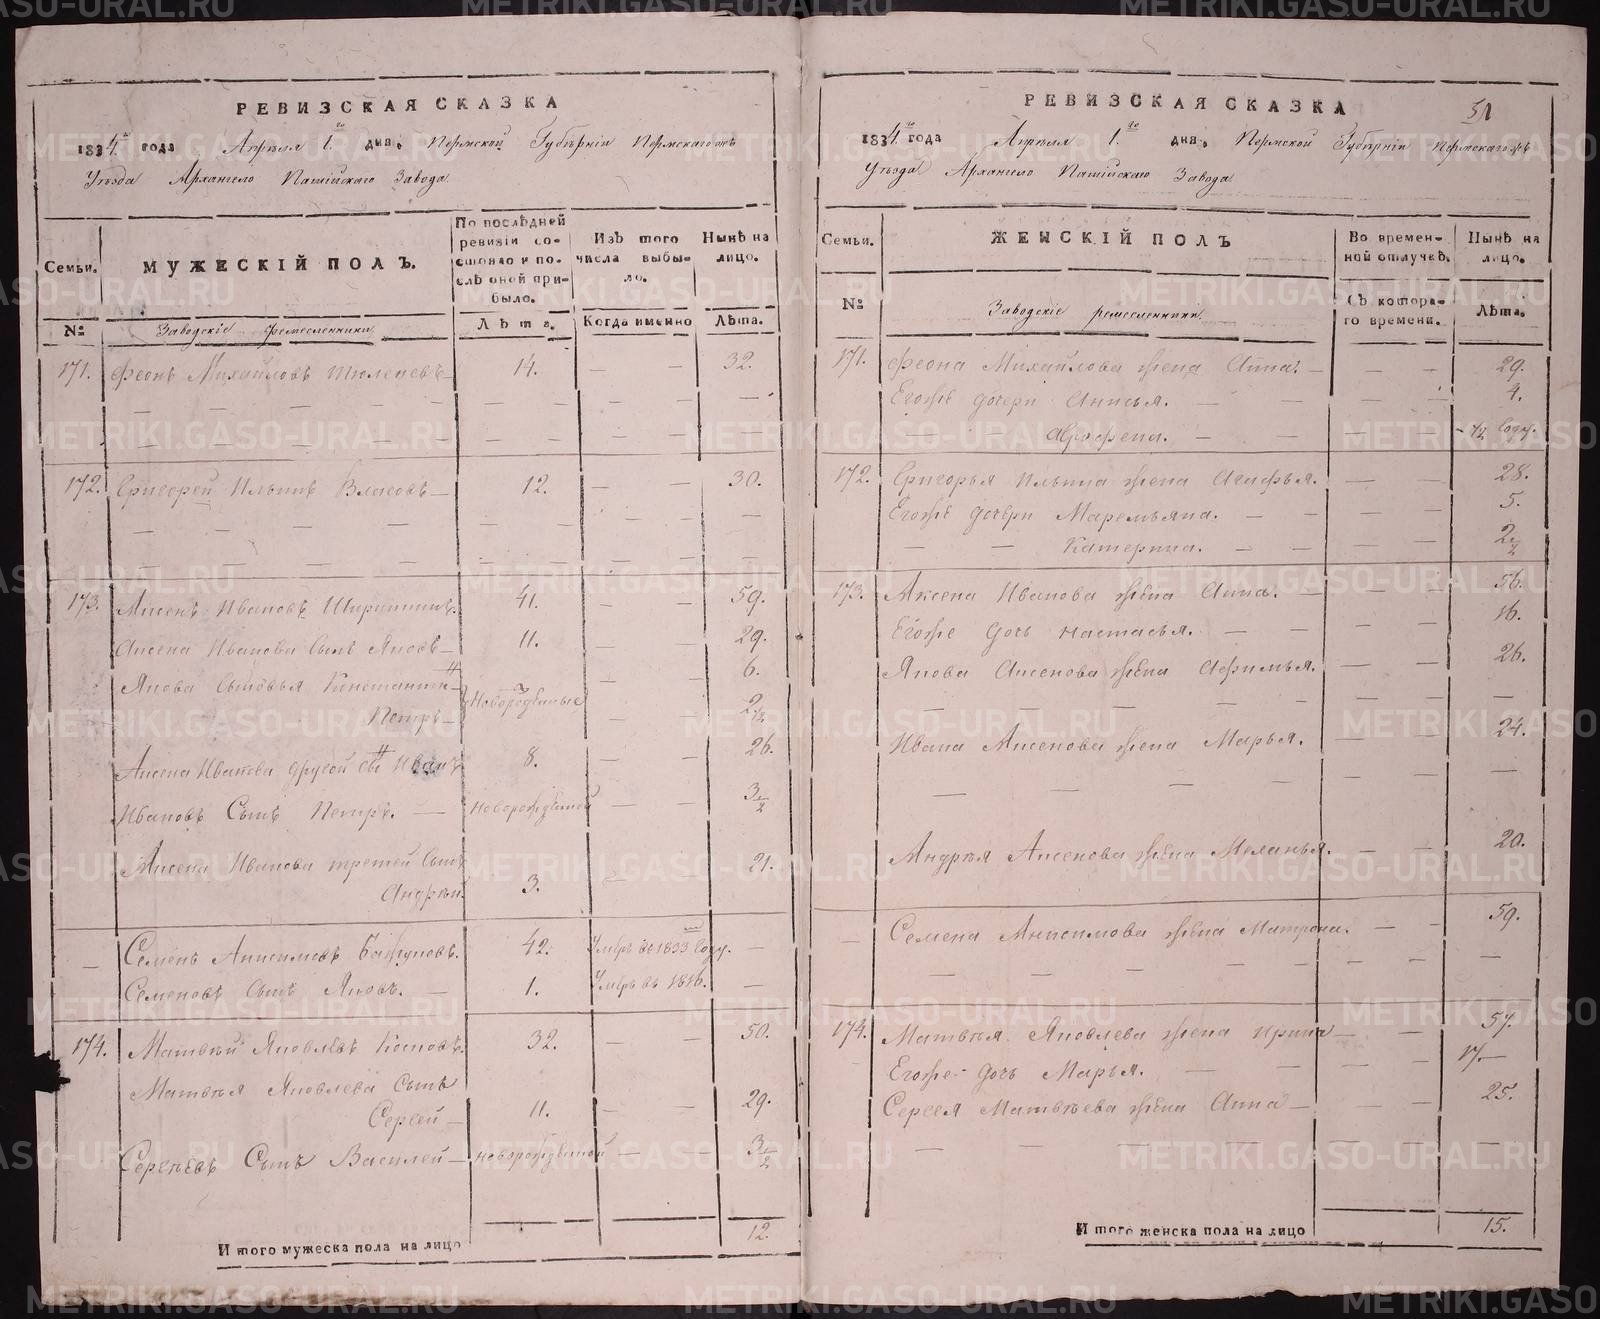 РЕВИЗСКАЯ СКАЗКА
1834го года Апрѣля 1го дня. Пермской Губѣрніи Пермскагожъ
Уѣзда Архангело Пашійскаго Завода
Семьи.
МУЖЕСКІЙ ПОЛЪ.
По послѣдней ревизіи состояло и послѣ оной прибыло.
Изъ того числа выбыло.
Нынѣ на лицо.
№
Заводскіе ремесленники
Лѣта.
Когда именно
Лѣта.
171. Феонъ Михайловъ Тюленевъ — 14. — — 32.
172. Григорей Ильинъ Власовъ — 12. — — 30.
173. Аксенъ Ивановъ 41. — — 59.
Аксена Иванова сынъ Яковъ — 11. — — 29.
Якова сыновья Константинъ — 6.
Новорожденные
Петръ — 2 1/2
Аксена Иванова другой сынъ Иванъ 8. — — 26.
Ивановъ Сынъ Петръ. — новорожденной — — 3 1/2
Аксена Иванова третей Сынъ
Андрѣй. 3. — 21.
— Семенъ Анисимовъ Бажуковъ. 42. Умеръ въ 1833 году. —
Семеновъ сынъ Яковъ. — 1. Умеръ въ 1816. —
174. Матвѣй Яковлевъ Косковъ. 32. — — 50.
Матвѣя Яковлева сынъ
Сергей — 11. — — 29.
Сергѣевъ Сынъ Василей — новорожденной — — 3 1/2
И того мужеска пола на лицо 12.
РЕВИЗСКАЯ СКАЗКА
51
1834го года Апрѣля 1го дня. Пермской Губѣрніи Пермскагожъ
Уѣзда Архангело Пашійскаго Завода
Семьи.
ЖЕНСКІЙ ПОЛЪ
Во временной отлучкѣ.
Нынѣ на лицо.
№
Заводскіе ремесленники.
Съ котораго времени.
Лѣта.
171. Феона Михайлова жена Анна. — — — 29.
Егожъ дочери Анисья. — — — 4.
— Аграфена. — — — 1/2 году.
172. Григорья Ильина жена Агафья. — — 28.
Егожъ дочери Маремьяна. — — — 5.
— — Катерина. — — — 2 1/2
173. Аксена Иванова жена Анна. — — — 56.
Егоже дочь Настасья. — — — 16.
Якова Аксенова жена Афимья. — — 26.
Ивана Аксенова жена Марья. — — 24.
Андрѣя Аксенова жена Меланья. — — 20.
— Семена Анисимова жена Матрона. — — 59.
174. Матвѣя Яковлева жена Ирина — — 57.
Егоже дочь Марья. — — — 17.
Сергея Матвѣева жена Анна — — — 25.
И того женска пола на лицо 15.
METRIKI.GASO-URAL.RU